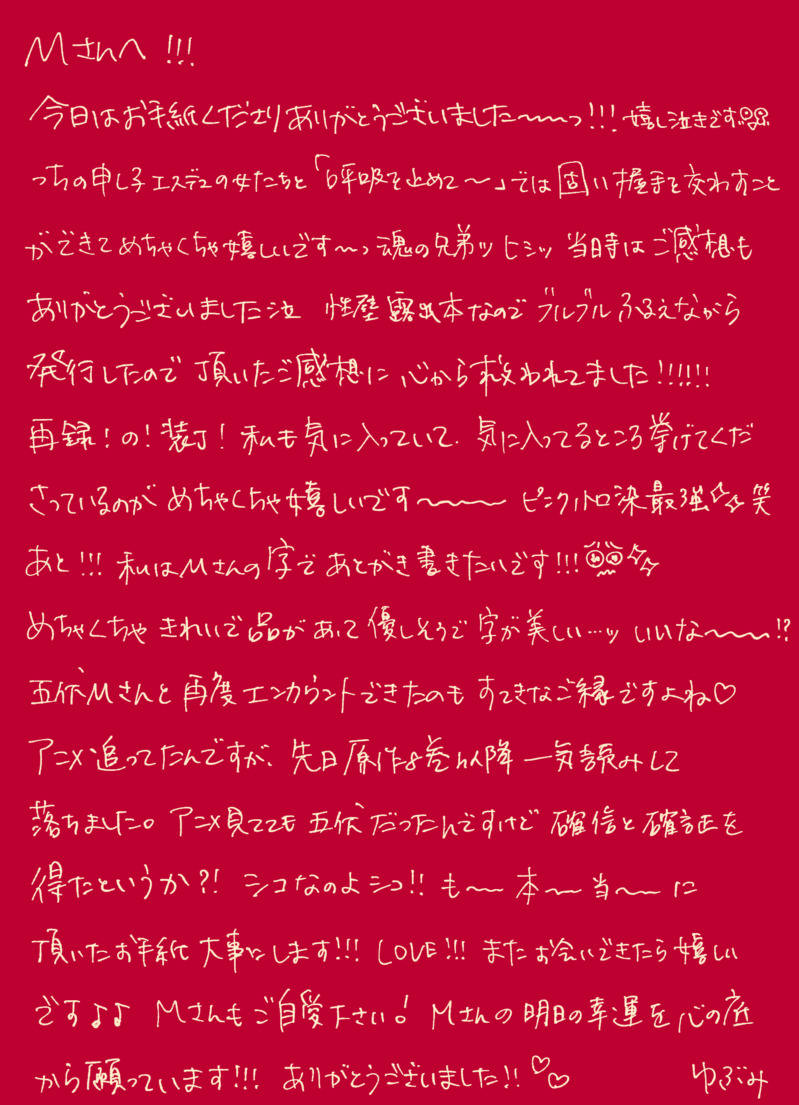 Mさんへ !!!
今日はお手紙くださりありがとうございました〜〜〜っ!!! 嬉し泣きです
っちの申し子エスデスの女たちと「呼吸を止めて〜」では固い握手を交わすこと
ができてめちゃくちゃ嬉しいです〜っ 魂の兄弟ッ ヒシッ 当時はご感想も
ありがとうございました泣 性壁露出本なので ブルブルふるえながら
発行したので 頂いたご感想に 心から救われてました!!!!!!
再録!の!装丁! 私も気に入っていて、気に入ってるところ挙げてくだ
さっているのが めちゃくちゃ嬉しいです〜〜〜〜 ピンク 染最強 笑
あと!!! 私はMさんの字であとがき書きたいです!!!
めちゃくちゃ きれいで品があって優しそうで字が美しい…ッ いいな〜〜〜!?
五伏Mさんと再度エンカウントできたのも すてきなご縁ですよね♡
アニメ追ってたんですが、先日原作8巻以降一気読みして
落ちました。アニメ見てても五伏だったんですけど 確信と確証を
得たというか?! シコなのよシコ!! も〜〜 本〜〜 当〜〜 に
頂いたお手紙 大事にします!!! LOVE!!! またお会いできたら嬉しい
ですよよ Mさんもご自愛下さい! Mさんの明日の幸運を心の底
から願っています!!! ありがとうございました!! ♡♡ ゆぶみ